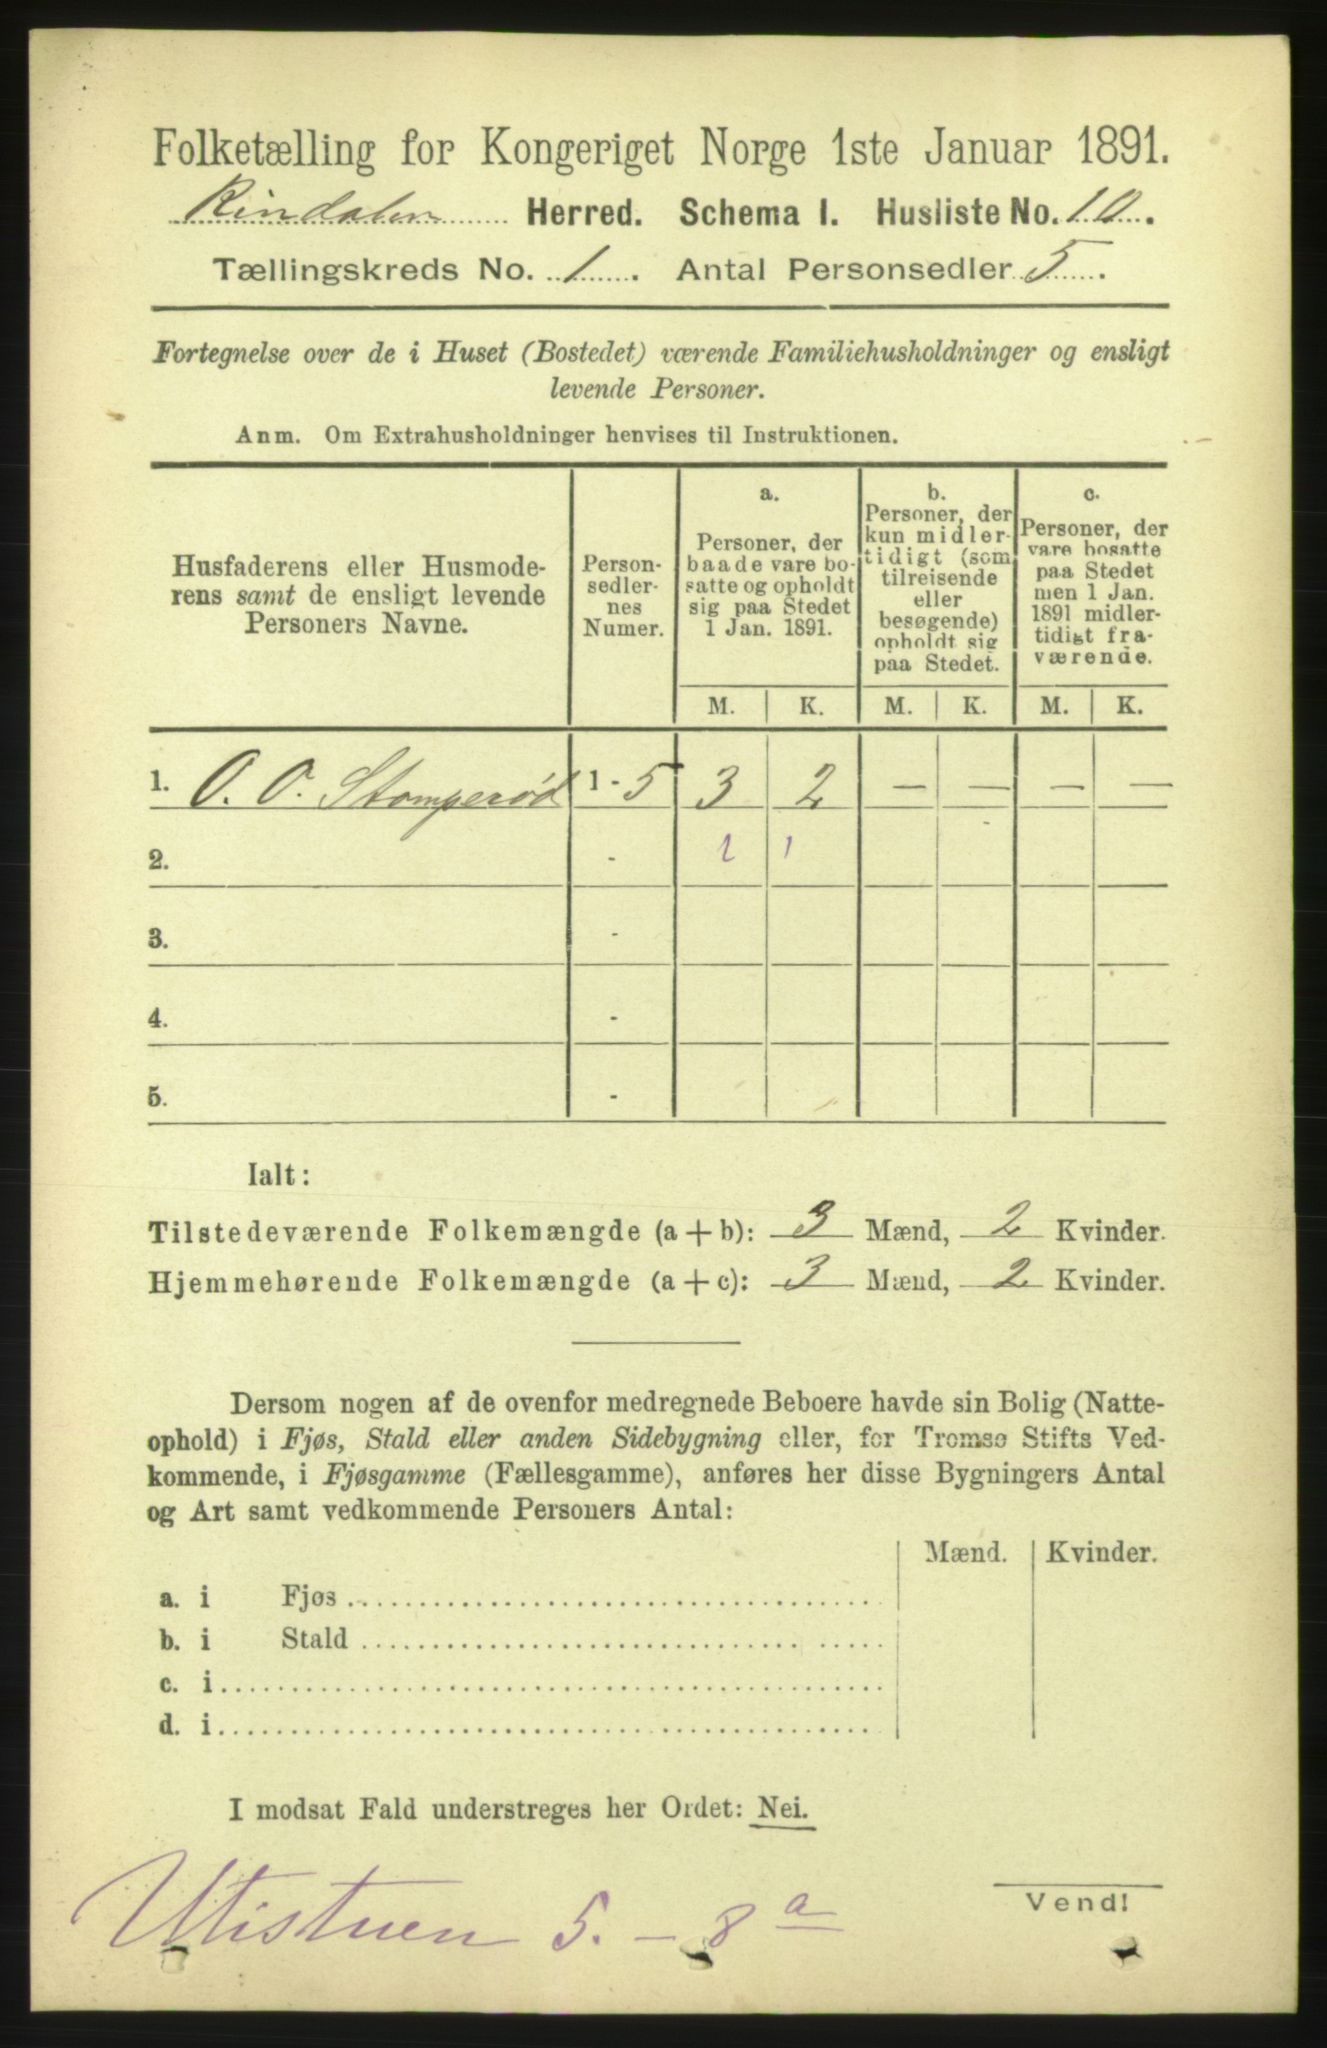 Folketælling for Kongeriget Norge 1ste Januar 1891.
Rindalen Herred. Schema I. Husliste No. 10.
Tællingskreds No. 1. Antal Personsedler 5.
Fortegnelse over de i Huset (Bostedet) værende Familiehusholdninger og ensligt
levende Personer.
Anm. Om Extrahusholdninger henvises til Instruktionen.
Husfaderens eller Husmode-
rens samt de ensligt levende
Personers Navne.
Person-
sedler-
nes
Numer.
a.
Personer, der
baade vare bo-
satte og opholdt
sig paa Stedet
1 Jan. 1891.
b.
Personer, der
kun midler-
tidigt (som
tilreisende
eller
besøgende)
opholdt sig
paa Stedet.
c.
Personer, der
vare bosatte
paa Stedet
men 1 Jan.
1891 midler-
tidigt fra-
værende.
M. K. M. K. M. K.
1. O. O. Stomperød 1 - 5 3 2 — — — —
2. - 1 1
3. -
4. -
5. -
Ialt:
Tilstedeværende Folkemængde (a + b): 3 Mænd, 2 Kvinder.
Hjemmehørende Folkemængde (a + c): 3 Mænd, 2 Kvinder.
Dersom nogen af de ovenfor medregnede Beboere havde sin Bolig (Natte-
ophold) i Fjøs, Stald eller anden Sidebygning eller, for Tromsø Stifts Ved-
kommende, i Fjøsgamme (Fællesgamme), anføres her disse Bygningers Antal
og Art samt vedkommende Personers Antal:
Mænd. Kvinder.
a. i Fjøs
b. i Stald
c. i
d. i
I modsat Fald understreges her Ordet: Nei.
Utistuen 5. - 8 a
Vend!